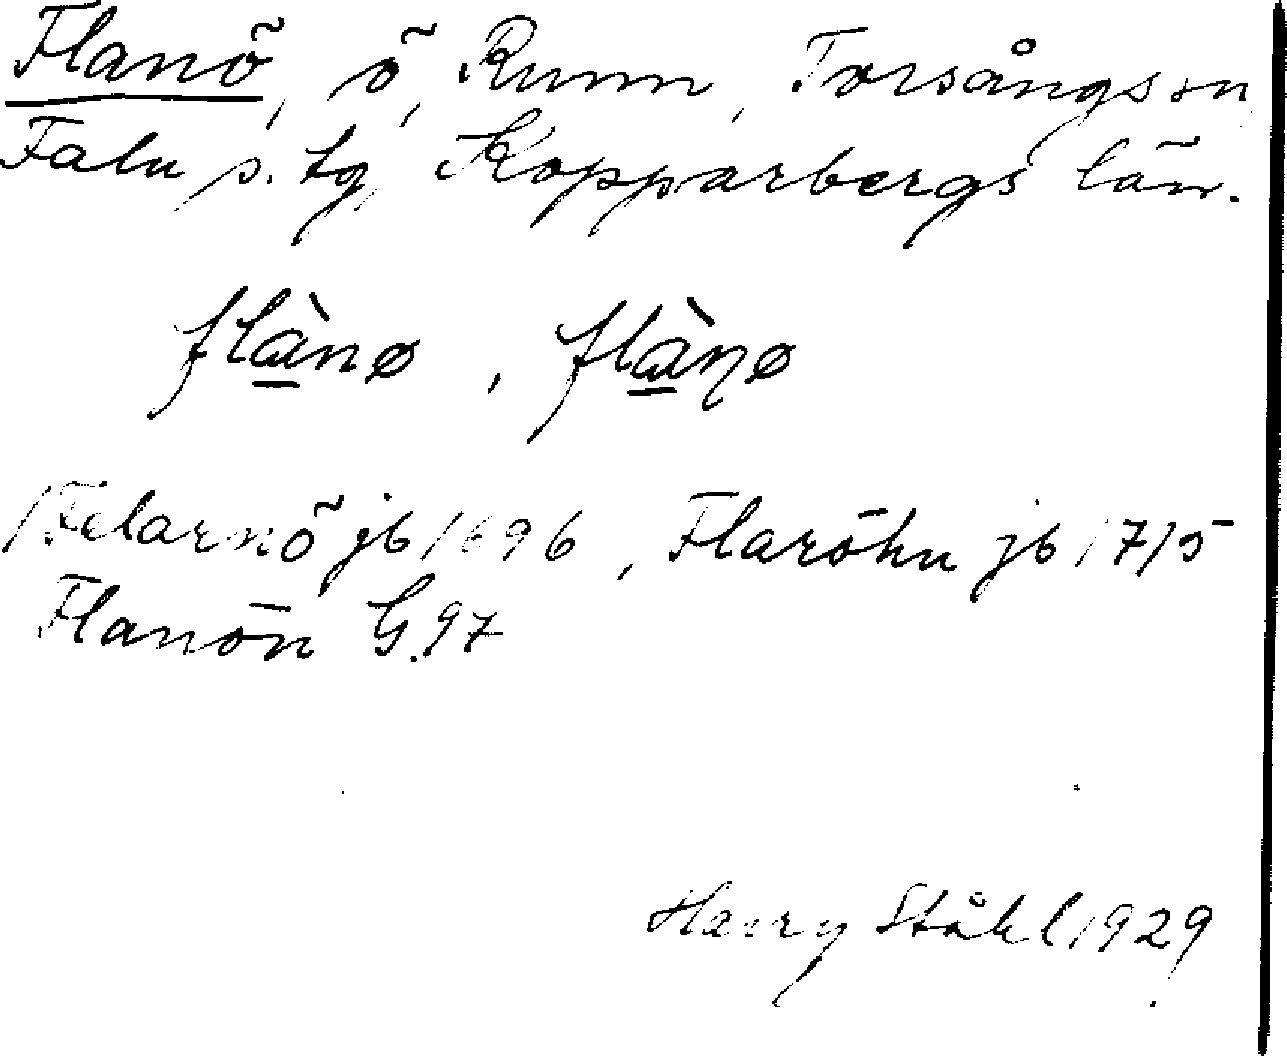 Flanö, ö, Runn, Torsångs sn
Falu s. tg, Kopparbergs län.
flànø, flàn̥ø
/Felarnö jb 1696, Flaröhn jb 1715
Flanön G.97
Harry Ståhl 1929